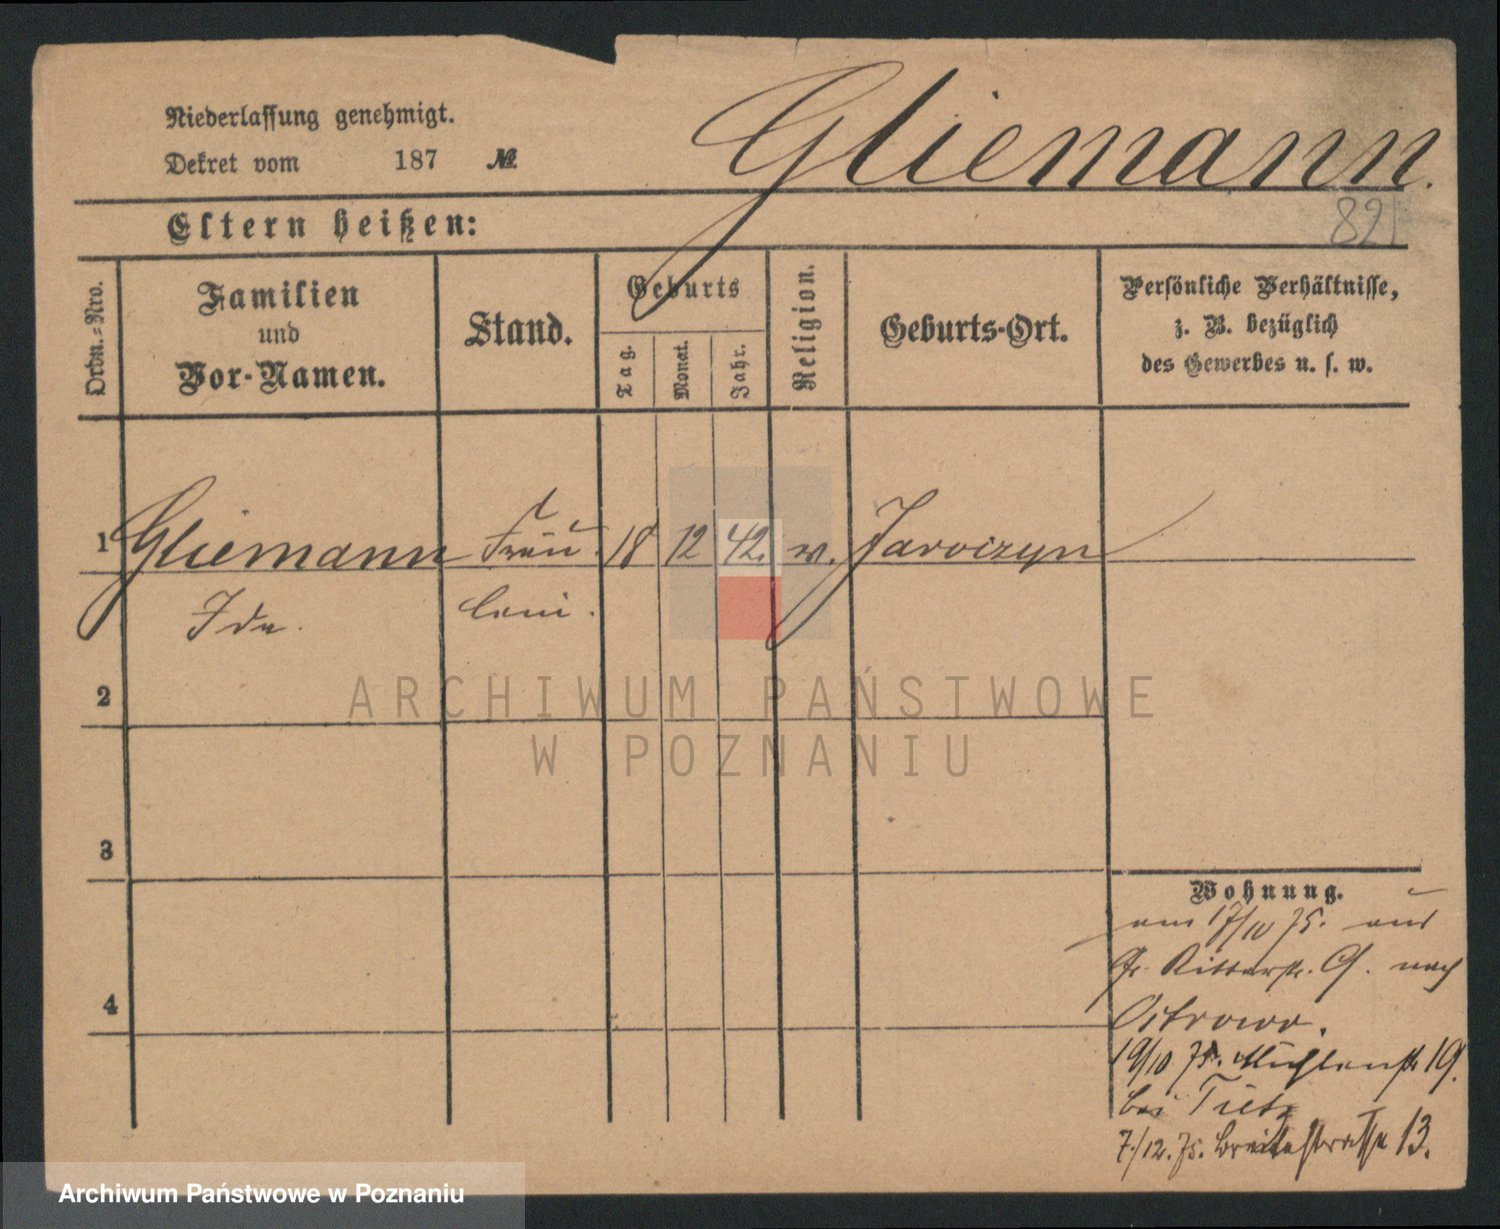 Niederlassung genehmigt.
Dekret vom 187 №
Gliemann.
821
Eltern heißen:
Ordn.=Nro.
Familien
und
Vor-Namen.
Stand.
Geburts
Tag.
Monat.
Jahr.
Religion.
Geburts-Ort.
Persönliche Verhältnisse,
z. B. bezüglich
des Gewerbes u. s. w.
1 Gliemann Fräu 18 12 42. Jarocizyn
Ida. lein.
2
ARCHIWUM PAŃSTWOWE
W POZNANIU
3
4
Wohnung.
am 17/10 75. aus
Gr. Ritterstr. 9. nach
Ostrowo.
19/10 75. Mühlenstr 19.
bei Tietz
7./12. 75. Breitestrasse 13.
Archiwum Państwowe w Poznaniu